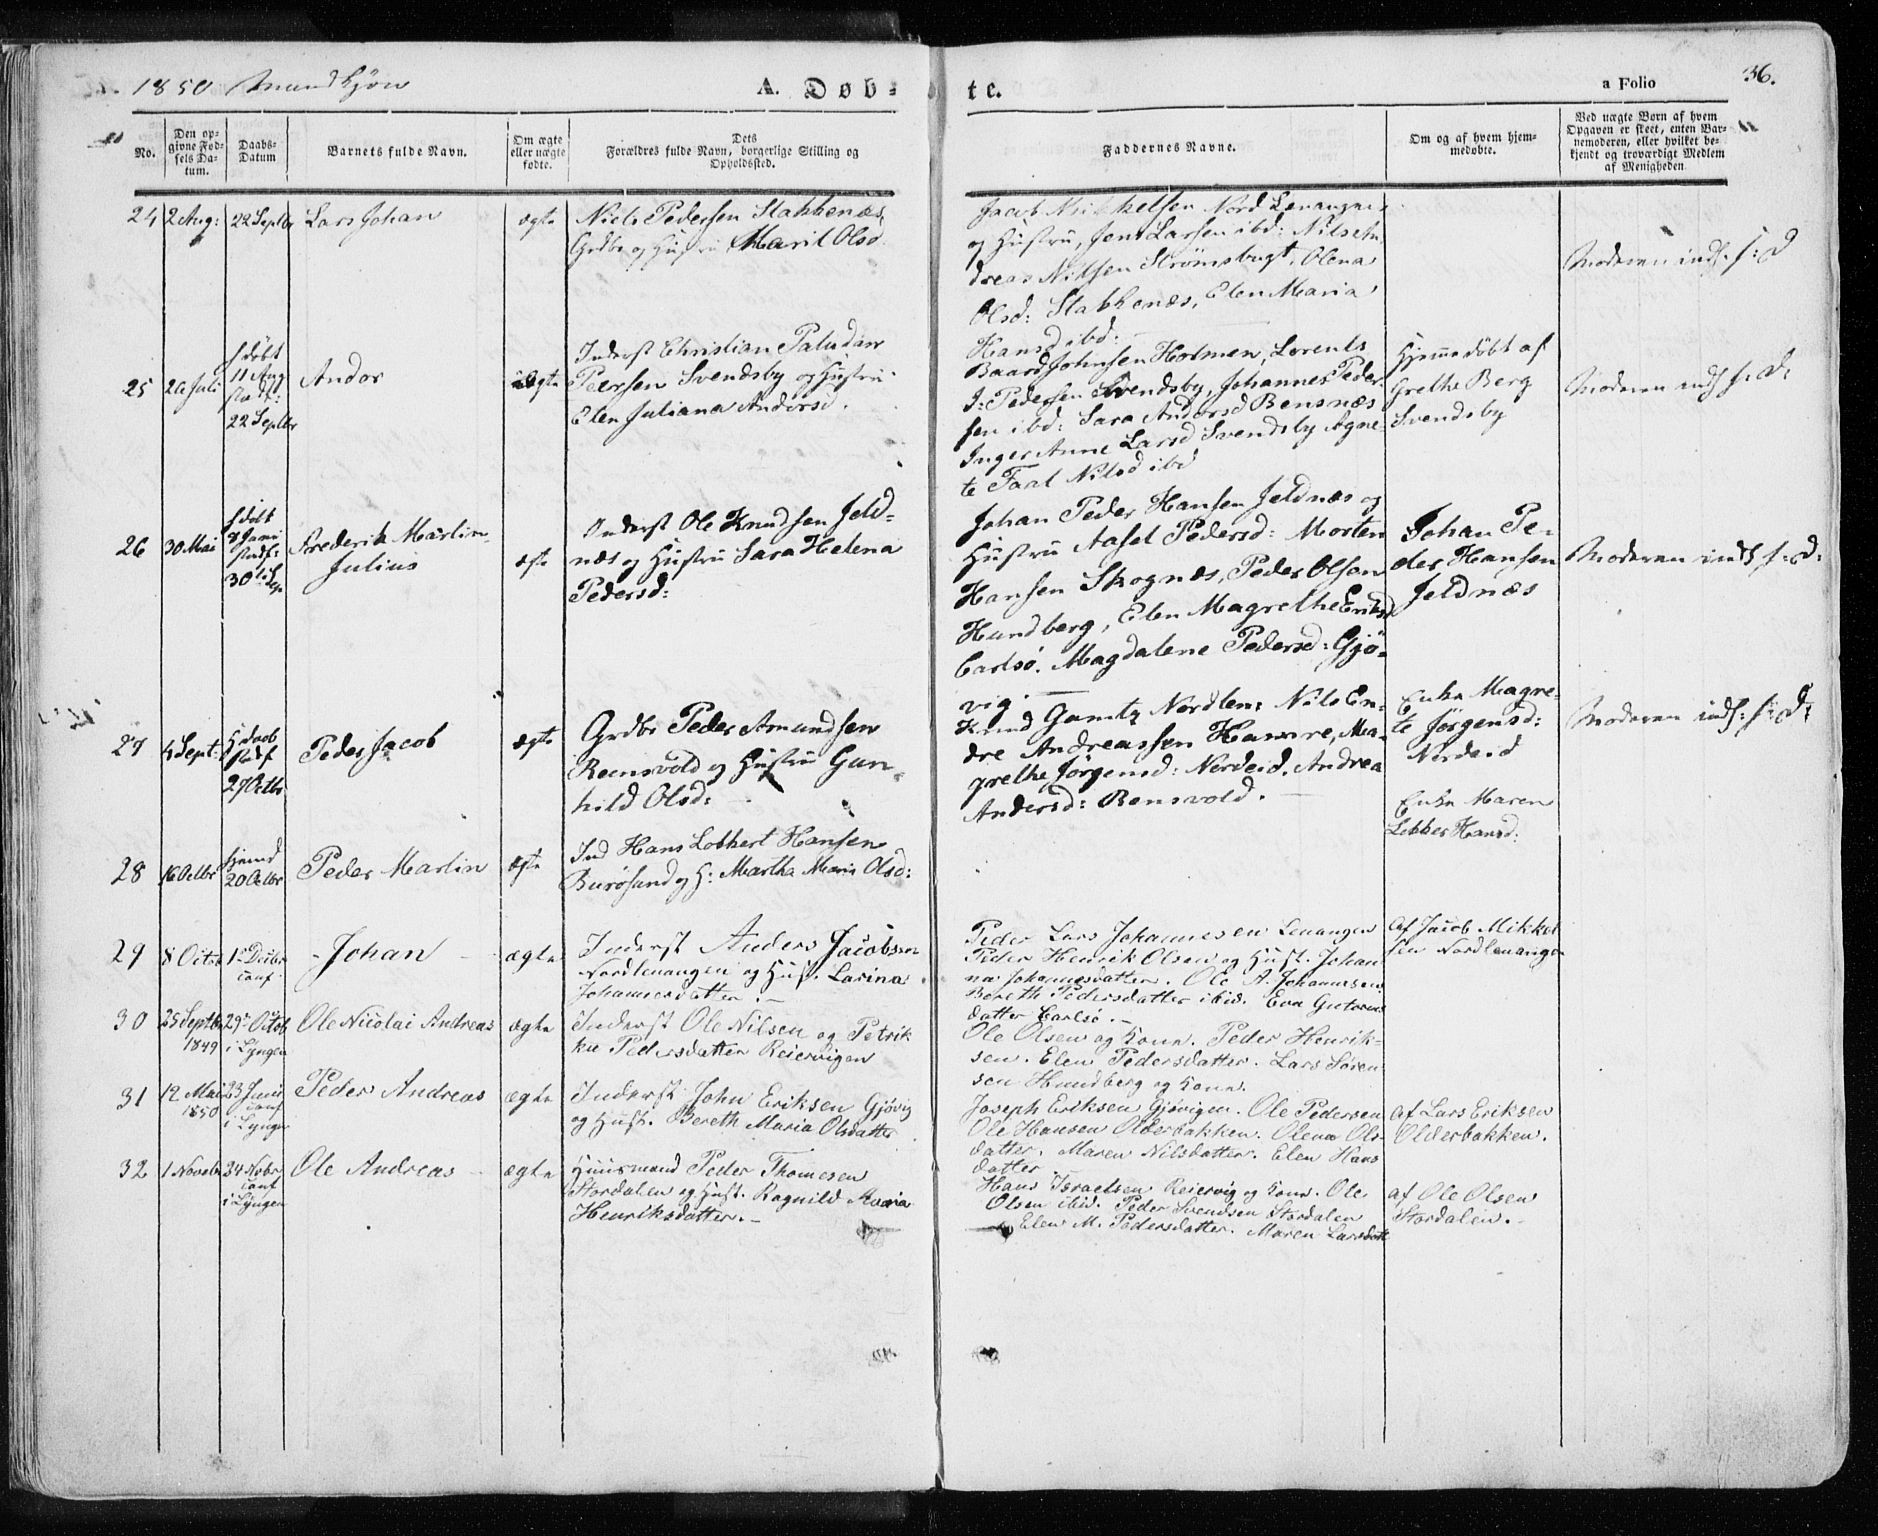 1850 Mandkjøn A. Døb-
te. a Folio 36.
No.
Den op-
givne Fød-
sels Da-
tum.
Daabs-
Datum
Barnets fulde Navn.
Om ægte
eller uægte
fødte.
Dets
Forældres fulde Navn, borgerlige Stilling og
Opholdssted.
Faddernes Navne.
Om og af hvem hjem-
medøbte.
Ved uægte Børn af hvem
Opgaven er skeet, enten Bar-
nemoderen, eller hvilket be-
kjendt og troværdigt Medlem
af Menigheden
24 2 Aug: 22 Septbr Lars Johan ægte
Niels Pedersen Stakkenæs,
Grdbr og Hustru Marit Olsd
Jacob Mikkelsen Nord Lenangen
og Hustru, Jens Larsen ibd: Nils An
dreas Nilsen Strømsbugt, Olena
Olsd: Stakkenæs, Elen Maria
Hansd ibd:
Moderen inds. f: D
25 20 Juli
hdøbt
11 Aug
stadf:
22 Septbr
Andor ægte
Inderst Christian Paludan
Peersen Svendsby og Hustru
Elen Juliana Andersd.
Baard Johnsen Holmen, Lorents
J: Pedersen Svendsby, Johannes Peder
sen ibd: Sara Andersd Bensnæs
Inger Anne Larsd Svendsby Agne-
te Taal Nilsd ibd
Hjemmedøbt af
Grethe Berg
Svendsby
Moderen inds f: D:
26 30 Mai
hdøbt
8 Juni
stadf:
30 Sep
Frederik Martin
Julius
ægte
Inderst Ole Knudsen Jeld-
næs og Hustru Sara Helena
Pedersd:
Johan Peder Hansen Jeldnæs og
Hustru Aasel Pedersd: Morten
Hansen Skognæs, Peder Olsen
Hundberg, Elen Magrethe Eriksd
Carlsø. Magdalene Pedersd: Gjø-
vig
Johan Pe-
der Hansen
Jeldnæs
Moderen inds f: D:
27 4 Sept:
Hdaab
stadf
27 Octbr
Peder Jacob ægte
Grdbr Peder Amundsen
Reensvold og Hustru Gun-
hild Olsd:
Knud Gamtz Nordlen: Nils En-
dre Andreassen Hamre, Ma-
grethe Jørgensd: Nordeid. Andrea
Andersd: Rensvold.
Enke Magre-
te Jørgensd:
Nordeid
Moderen inds: f: D:
28 16 Octbr
hjemd
20 Octbr
Peder Martin ægte
Ind Hans Lobbert Hansen
Burøsund og H: Martha Maria Olsd:
Enke Maren
Lebber Hansd:
29 8 Octob 1 Decbr
conf.
Johan ægte
Inderst Anders Jacobsen
Nordlenangen og Hust. Larina
Johannesdatter.
Peder Lars Johannesen Lenangen
Peder Henrik Olsen og Hust. Johan
na Johannesdatter. Ole A. Johannesen.
Bereth Pedersdatter ibid. Eva Gutorms
datter Carlsø.
Af Jacob Mikkel
sen Nordlenangen
30 25 Septbr
1849
29 Octob
i Lyngen
Ole Nicolai Andreas ægte
Inderst Ole Nilsen og Petrik
ke Pedersdatter Reiervigen
Ole Olsen og Kone. Peder Henrik-
sen. Elen Pedersdatter. Lars Søren
sen Hundberg og Kone.
31 12 Mai
1850
23 Juni
conf
i Lyngen
Peder Andreas ægte
Inderst John Eriksen Gjøvig
og Hust. Bereth Maria Olsdatter
Joseph Eriksen Gjøvigen. Ole Pedersen
Ole Hansen Olderbakken. Olena Ols-
datter. Maren Nilsdatter. Elen Hans
datter
af Lars Eriksen
Olderbakken.
32 1 Novebr 24 Nobr
conf
i Lyngen
Ole Andreas ægte
Huusmand Peder Thomesen
Stordalen og Hust. Ragnild Maria
Henriksdatter.
Hans Israelsen Reiervig og Kone. Ole
Olsen ibid. Peder Svendsen Stordalen
Elen M. Pedersdatter. Maren Larsdatt
af Ole Olsen
Stordalen.